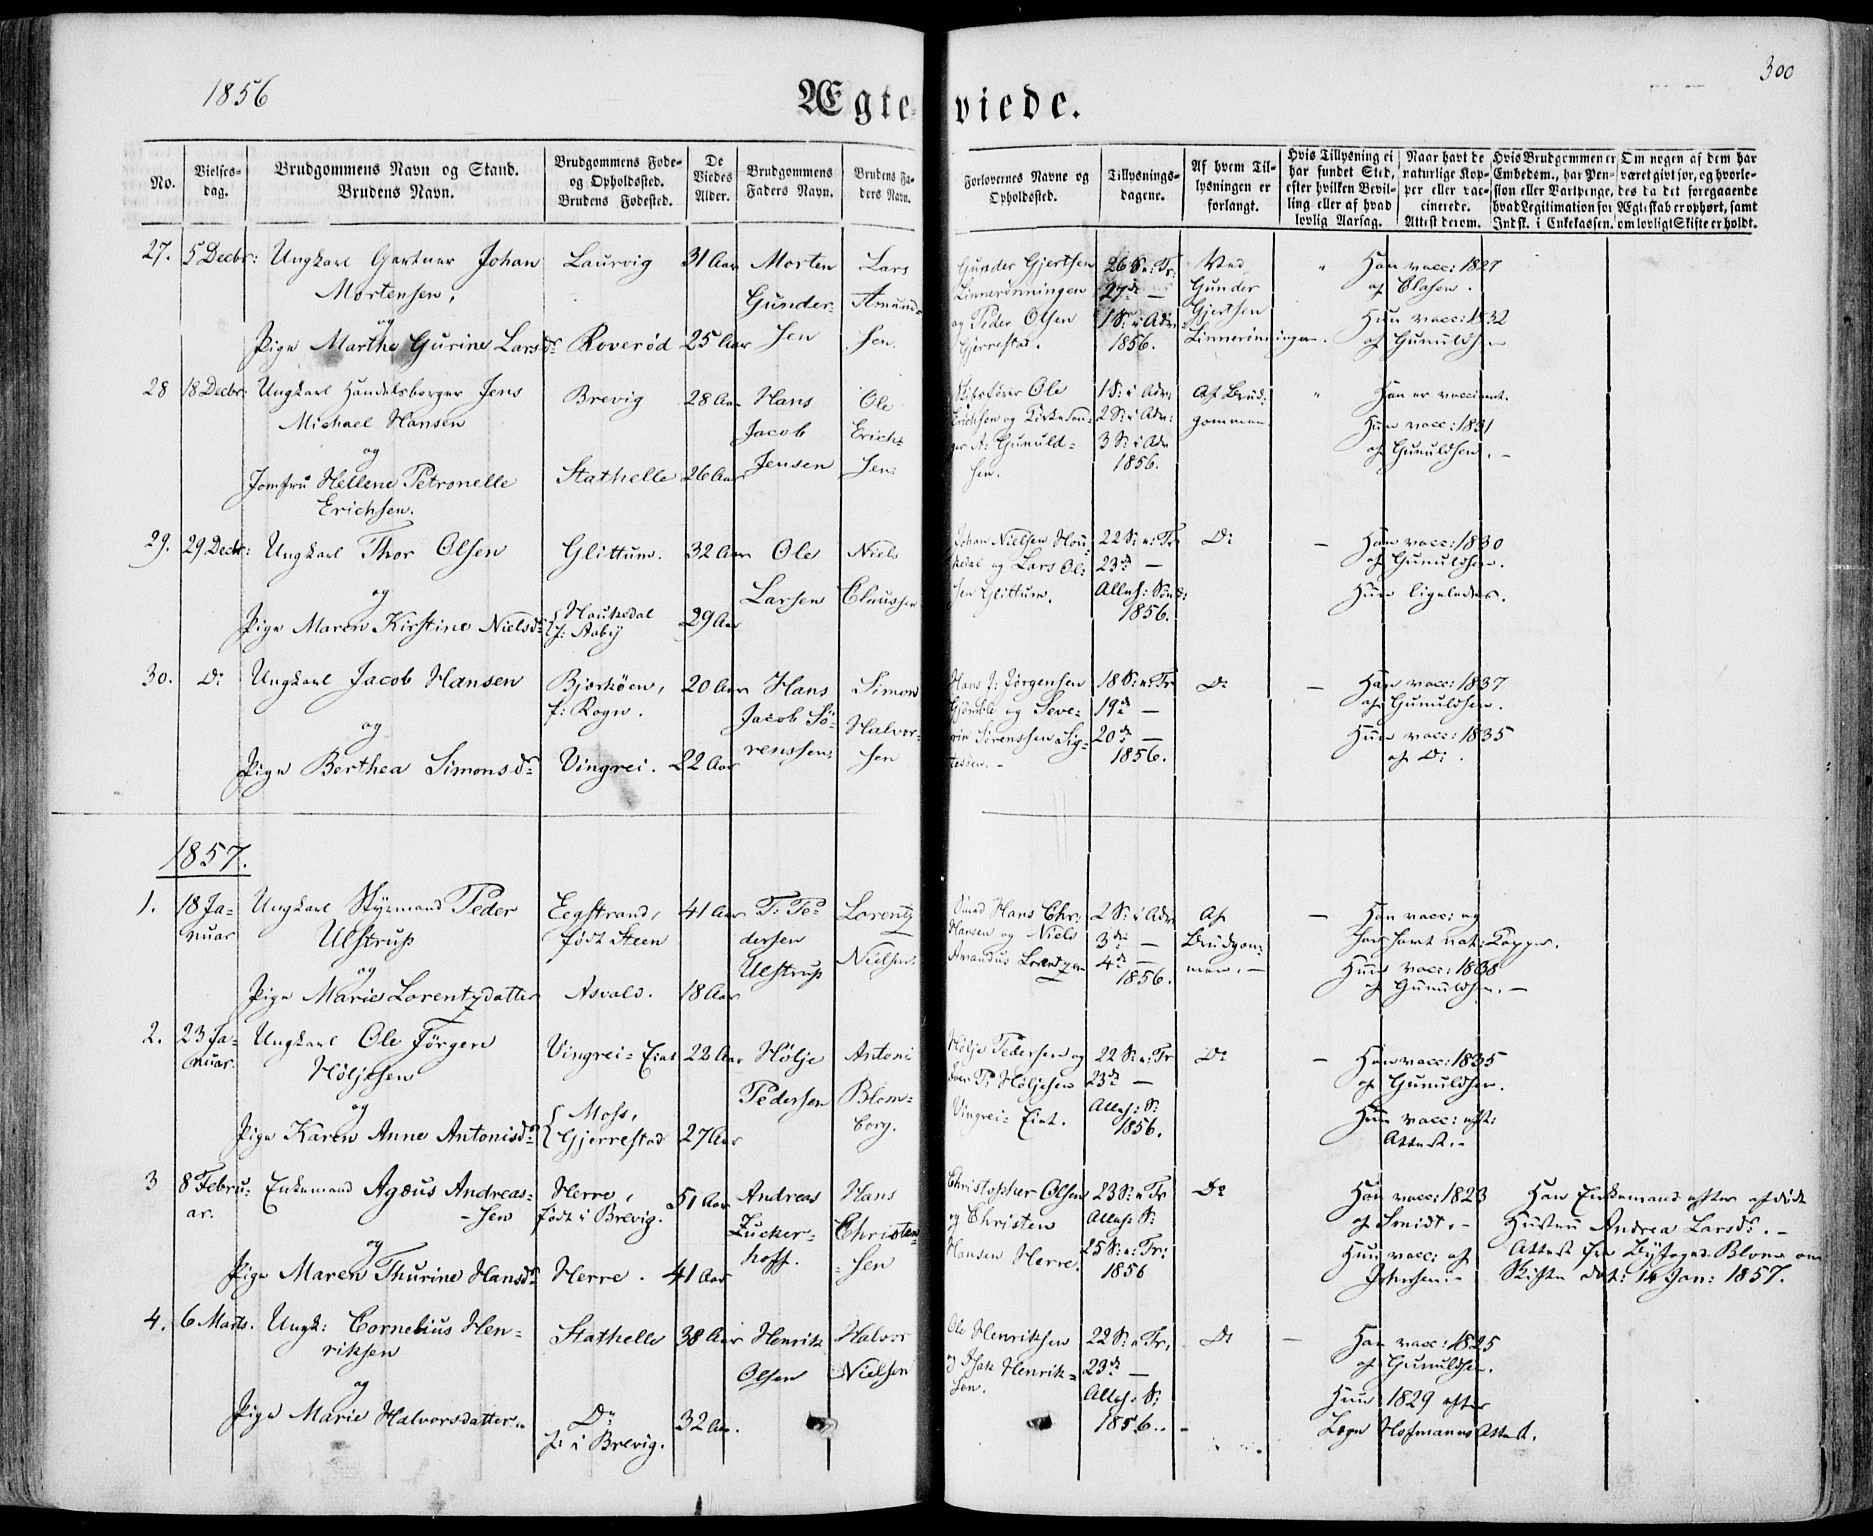 1856
300
Ægteviede.
No.
Vielses-
dag.
Brudgommens Navn og Stand.
Brudens Navn.
Brudgommens Føde-
og Opholdssted.
Brudens Fødested.
De
Viedes
Alder.
Brudgommens
Faders Navn.
Brudens Fa-
ders Navn.
Forlovernes Navne og
Opholdssted.
Tillysnings-
dagene.
Af hvem Til-
lysningen er
forlangt.
Hvis Tillysning ei
har fundet Sted,
efter hvilken Bevil-
ling eller af hvad
lovlig Aarsag.
Naar havt de
naturlige Kop-
per eller vac-
cinerede.
Attest derom.
Hvis Brudgommen er
Embedsm., har Pen-
sion eller Vartpenge,
hvad Legitimation for
Indsk. i Enkekassen.
Om nogen af dem har
været gift før, og hvorle-
des da det foregaaende
Ægteskab er ophørt, samt
om lovligt Skifte er holdt.
27.
5 Decbr:
Ungkarl Gartner Johan
Mortensen,
og
Pige Marthe Gurine Larsdr
Laurvig
Roverød
31 Aar
25 Aar
Morten
Gunder-
sen
Lars
Amund-
sen.
Gunder Gjertsen
Linnerønningen
og Peder Olsen
Gjerrestad.
26 S. e: Tr:
27de —
1 S: i Adv:
1856.
Ved
Gunder
Gjertsen
Linnerønningen.
"
Han vacc: 1827
af Clasen.
Hun vacc: 1832
af Gunuldsen
28
18 Decbr:
Ungkarl Handelsborger Jens
Michael Hansen
og
Jomfru Hellene Petronelle
Erichsen.
Brevig
Stathelle
28 Aar
26 Aar
Hans
Jacob
Jensen
Ole
Erich-
sen:
Skibsfører Ole
Erichsen og Kirkesan-
ger A: Gunuld-
sen.
1 S: i Adv:
2 S: i Adv:
3 S: i Adv
1856.
Af Brud-
gommen
"
Han er vaccinert.
Hun vacc: 1831
af Gunuldsen. —
29.
29 Decbr:
Ungkarl Thor Olsen
og
Pige Maren Kirstine Nielsdr
Glittum.
Houkedal
f: Aaby
32 Aar
29 Aar
Ole
Larsen
Niels
Claussen
Johan Nielsen Hou-
kedal og Lars Ol-
sen Glittum.
22 S: e: Tr
23de —
Alleh: Sønd:
1856.
Do
—
Han vacc: 1830
af Gunuldsen.
Hun ligeledes.
30.
Do
Ungkarl Jacob Hansen
og
Pige Berthea Simonsdr
Bjorkøen,
f: Rogn.
Vingrei.
20 Aar
22 Aar
Hans
Jacob Sö-
renssen.
Simon
Halvor-
sen
Hans J: Jørgensen
Gjømle og Seve-
rin Sørenssen Sig-
tesøen. —
18 S: e: Tr
19de —
20de —
1856.
Do
—
Han vacc: 1837
af Gunuldsen.
Hun vacc: 1835
af Do.
1857.
1.
18 Ja-
nuar
Ungkarl Styrmand Peder
Ulstrup
og
Pige Marie Lorentzdatter
Eegstrand,
født Steen
Asvald.
41 Aar
18 Aar
T: Pe-
dersen
Ulstrup
Lorentz
Nielsen.
Smed Hans Chr:
Hansen og Niels
Amandus Lorentzen
2 S: i Adv
3de —
4de —
1856.
Af
Brudgom-
men. —
—
Han vacc: og
har havt nat: Kopper.
Hun vacc: 1838
af Gunuldsen. —
2.
23 Ja-
nuar.
Ungkarl Ole Jörgen
Höljesen
og
Pige Karen Anne Antonisdr
Vingrei-Eiet
Moss,
Gjerrestad
22 Aar
27 Aar
Hölje
Pedersen
Antoni
Blom-
berg.
Hölje Pedersen og
Iver P: Höljesen
Vingrei-Eiet.
22 S: e: Tr
23de —
Alleh: S:
1856.
Do
—
Han vacc: 1835
af Gunuldsen.
Hun vacc: eft:
Attest. —
3
8 Febru-
ar.
Enkemand Agæus Andreas-
sen
og
Pige Maren Thurine Hansdr
Herre,
født i Brevig.
Herre.
51 Aar
41 Aar
Andreas
Zucker-
hoff.
Hans
Christen-
sen
Christopher Olsen
og Christen
Hansen Herre.
23 S: e Tr
Alleh: S:
25 S: e: Tr:
1856
Do
Han vacc: 1823
af Smidt. —
Hun vacc: af
Johnsen. —
Han Enkemand efter afdøde
Hustru Andrea Larsdr. —
Attest fra Byfoged Blom om
Skifte dat: 14 Jan: 1857.
4.
6 Marts.
Ungk: Cornelius Hen-
riksen
og
Pige Marie Halvorsdatter.
Stathelle
Do
f: i Brevig.
38 Aar
32 Aar.
Henrik
Olsen
Halvor
Nielsen
Ole Henriksen
og Isak Henrik-
sen.
22 S: e Tr.
23de —
Alleh: S:
1856. —
Do
—
Han vacc: 1825
af Gunuldsen.
Hun 1829 efter
Læge Hofmanns Attest.